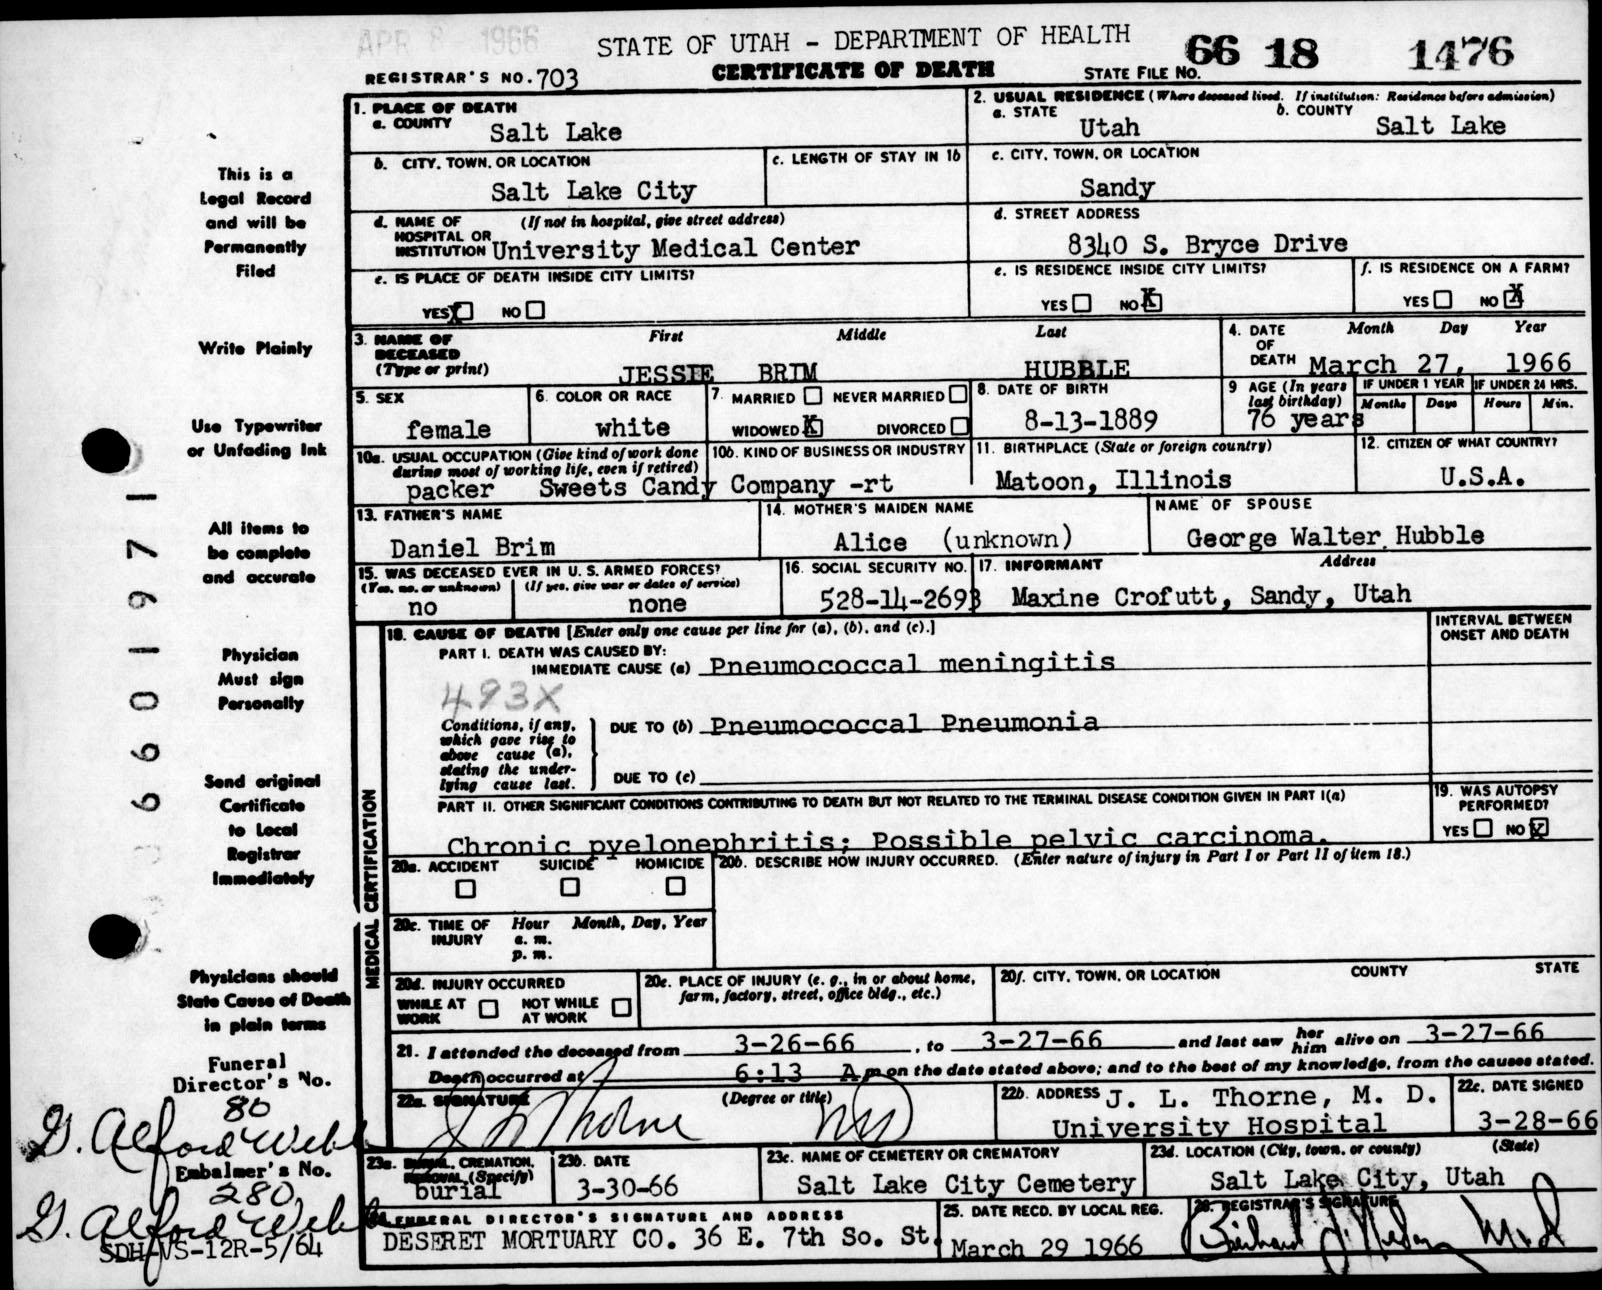 APR 8 1966
STATE OF UTAH - DEPARTMENT OF HEALTH
CERTIFICATE OF DEATH
REGISTRAR'S NO. 703
STATE FILE NO. 66 18 1476
This is a
Legal Record
and will be
Permanently
Filed
Write Plainly
Use Typewriter
or Unfading Ink
All items to
be complete
and accurate
Physician
Must sign
Personally
Send original
Certificate
to Local
Registrar
Immediately
Physicians should
State Cause of Death
in plain terms
Funeral
Director's No.
80
G. Alford Webb
Embalmer's No.
280
G. Alford Webb
SDH-VS-12R-5/64
6601971
1. PLACE OF DEATH
a. COUNTY Salt Lake
b. CITY, TOWN, OR LOCATION
Salt Lake City
c. LENGTH OF STAY IN 1b
d. NAME OF HOSPITAL OR INSTITUTION (If not in hospital, give street address)
University Medical Center
e. IS PLACE OF DEATH INSIDE CITY LIMITS?
YES X NO
2. USUAL RESIDENCE (Where deceased lived. If institution: Residence before admission)
a. STATE Utah
b. COUNTY Salt Lake
c. CITY, TOWN, OR LOCATION
Sandy
d. STREET ADDRESS
8340 S. Bryce Drive
e. IS RESIDENCE INSIDE CITY LIMITS?
YES NO X
f. IS RESIDENCE ON A FARM?
YES NO X
3. NAME OF DECEASED (Type or print)
First Middle Last
JESSIE BRIM HUBBLE
4. DATE OF DEATH Month Day Year
March 27, 1966
5. SEX
female
6. COLOR OR RACE
white
7. MARRIED NEVER MARRIED
WIDOWED X DIVORCED
8. DATE OF BIRTH
8-13-1889
9 AGE (In years last birthday)
76 years
IF UNDER 1 YEAR IF UNDER 24 HRS.
Months Days Hours Min.
10a. USUAL OCCUPATION (Give kind of work done during most of working life, even if retired)
10b. KIND OF BUSINESS OR INDUSTRY
packer Sweets Candy Company -rt
11. BIRTHPLACE (State or foreign country)
Matoon, Illinois
12. CITIZEN OF WHAT COUNTRY?
U.S.A.
13. FATHER'S NAME
Daniel Brim
14. MOTHER'S MAIDEN NAME
Alice (unknown)
NAME OF SPOUSE
George Walter Hubble
15. WAS DECEASED EVER IN U. S. ARMED FORCES?
(Yes, no, or unknown) (If yes, give war or dates of service)
no none
16. SOCIAL SECURITY NO.
528-14-2693
17. INFORMANT Address
Maxine Crofutt, Sandy, Utah
MEDICAL CERTIFICATION
18. CAUSE OF DEATH [Enter only one cause per line for (a), (b), and (c).]
INTERVAL BETWEEN ONSET AND DEATH
PART I. DEATH WAS CAUSED BY:
IMMEDIATE CAUSE (a) Pneumococcal meningitis
493X
Conditions, if any, which gave rise to above cause (a), stating the underlying cause last.
DUE TO (b) Pneumococcal Pneumonia
DUE TO (c)
PART II. OTHER SIGNIFICANT CONDITIONS CONTRIBUTING TO DEATH BUT NOT RELATED TO THE TERMINAL DISEASE CONDITION GIVEN IN PART I(a)
Chronic pyelonephritis; Possible pelvic carcinoma.
19. WAS AUTOPSY PERFORMED?
YES NO X
20a. ACCIDENT SUICIDE HOMICIDE
20b. DESCRIBE HOW INJURY OCCURRED. (Enter nature of injury in Part I or Part II of item 18.)
20c. TIME OF INJURY Hour Month, Day, Year
a. m.
p. m.
20d. INJURY OCCURRED
WHILE AT WORK NOT WHILE AT WORK
20e. PLACE OF INJURY (e. g., in or about home, farm, factory, street, office bldg., etc.)
20f. CITY, TOWN, OR LOCATION COUNTY STATE
21. I attended the deceased from 3-26-66, to 3-27-66 and last saw her him alive on 3-27-66
Death occurred at 6:13 A m on the date stated above; and to the best of my knowledge, from the causes stated.
22a. SIGNATURE (Degree or title)
J L Thorne MD
22b. ADDRESS J. L. Thorne, M. D.
University Hospital
22c. DATE SIGNED
3-28-66
23a. BURIAL, CREMATION, REMOVAL (Specify)
burial
23b. DATE
3-30-66
23c. NAME OF CEMETERY OR CREMATORY
Salt Lake City Cemetery
23d. LOCATION (City, town, or county) (State)
Salt Lake City, Utah
24. FUNERAL DIRECTOR'S SIGNATURE AND ADDRESS
DESERET MORTUARY CO. 36 E. 7th So. St.
25. DATE RECD. BY LOCAL REG.
March 29 1966
26. REGISTRAR'S SIGNATURE